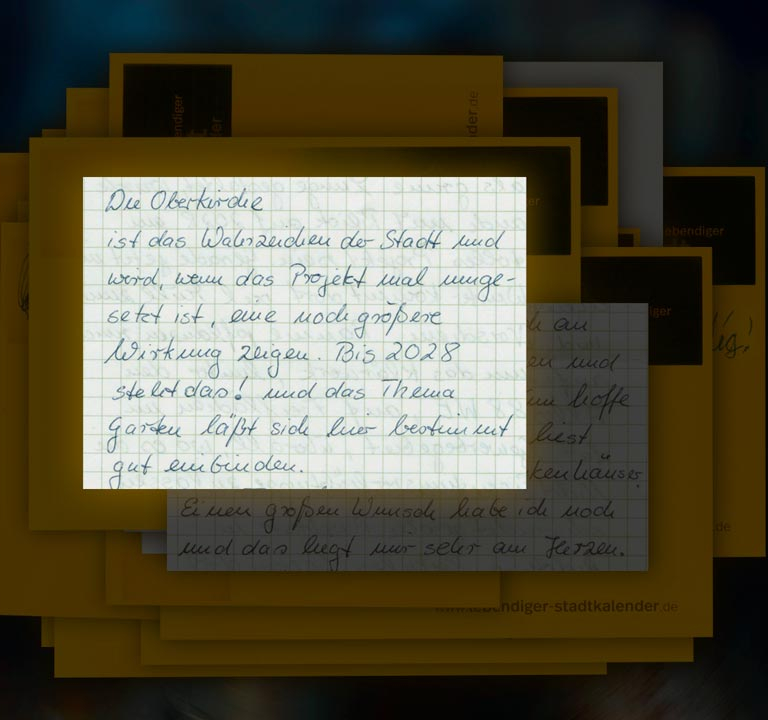 Die Oberkirche
ist das Wahrzeichen der Stadt und
wird, wenn das Projekt mal umge-
setzt ist, eine noch größere
Wirkung zeigen. Bis 2028
steht das! und das Thema
Garten läßt sich hier bestimmt
gut einbinden.
h an
en und
hoffe
liest
kenhäuser
Einen großen Wunsch habe ich noch
und das liegt mir sehr am Herzen.
www.lebendiger-stadtkalender.de
endiger
der.de
lebendiger
iger
de